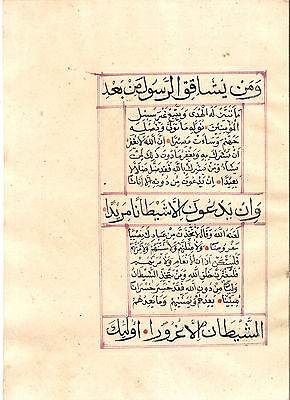 وَمَن يُشَاقِقِ الرَّسُولَ مِن بَعْدِ
مَا تَبَيَّنَ لَهُ الْهُدَى وَيَتَّبِعْ غَيْرَ سَبِيلِ
الْمُؤْمِنِينَ نُوَلِّهِ مَا تَوَلَّى وَنُصْلِهِ
جَهَنَّمَ وَسَاءَتْ مَصِيرًا إِنَّ اللَّهَ لَا يَغْفِرُ
أَن يُشْرَكَ بِهِ وَيَغْفِرُ مَا دُونَ ذَلِكَ لِمَن
يَشَاءُ وَمَن يُشْرِكْ بِاللَّهِ فَقَدْ ضَلَّ ضَلَالًا
بَعِيدًا إِن يَدْعُونَ مِن دُونِهِ إِلَّا إِنَاثًا
وَإِن يَدْعُونَ إِلَّا شَيْطَانًا مَرِيدًا
لَعَنَهُ اللَّهُ وَقَالَ لَأَتَّخِذَنَّ مِنْ عِبَادِكَ نَصِيبًا
مَفْرُوضًا وَلَأُضِلَّنَّهُمْ وَلَأُمَنِّيَنَّهُمْ وَلَآمُرَنَّهُمْ
فَلَيُبَتِّكُنَّ آذَانَ الْأَنْعَامِ وَلَآمُرَنَّهُمْ
فَلَيُغَيِّرُنَّ خَلْقَ اللَّهِ وَمَن يَتَّخِذِ الشَّيْطَانَ
وَلِيًّا مِن دُونِ اللَّهِ فَقَدْ خَسِرَ خُسْرَانًا
مُبِينًا يَعِدُهُمْ وَيُمَنِّيهِمْ وَمَا يَعِدُهُمُ
الشَّيْطَانُ إِلَّا غُرُورًا أُولَئِكَ